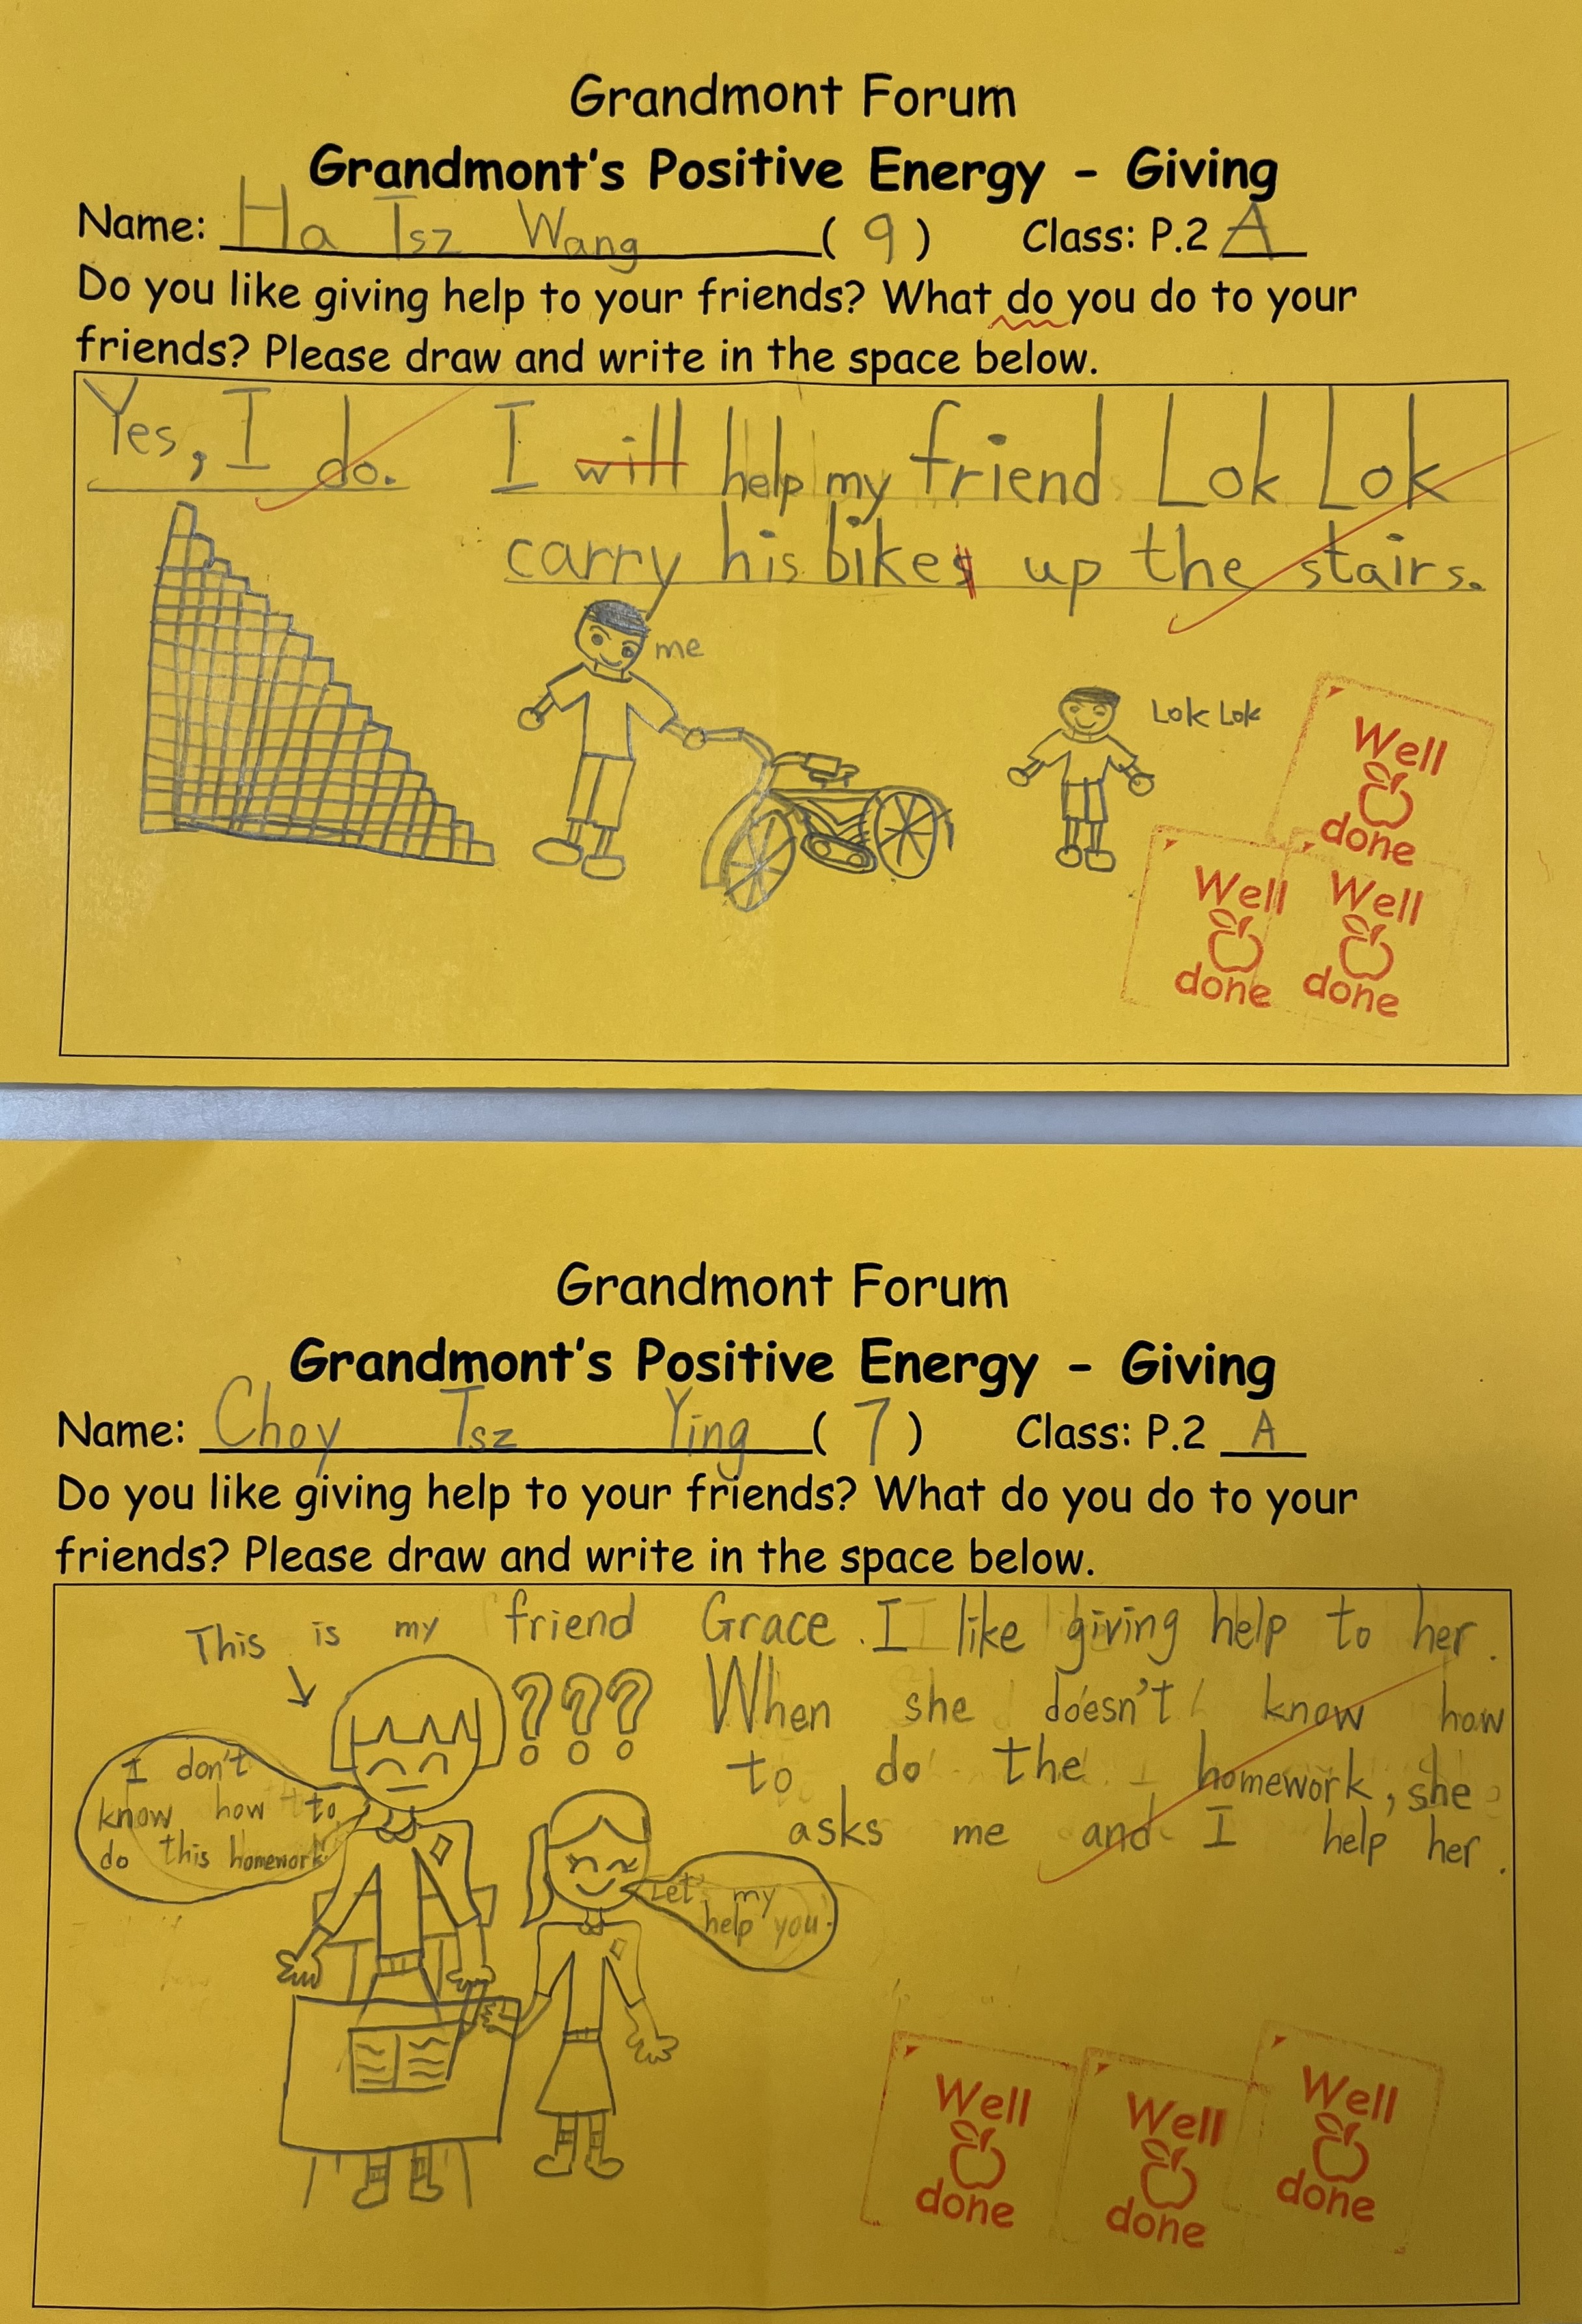 Grandmont Forum
Grandmont's Positive Energy - Giving
Name: Ha Tsz Wang (9) Class: P.2 A
Do you like giving help to your friends? What do you do to your
friends? Please draw and write in the space below.
Yes, I do. I will help my friend Lok Lok
carry his bikes up the stairs.
me
Lok Lok
Well
done
Well
done
Well
done
Grandmont Forum
Grandmont's Positive Energy - Giving
Name: Choy Tsz Ying (7) Class: P.2 A
Do you like giving help to your friends? What do you do to your
friends? Please draw and write in the space below.
This is my friend Grace. I like giving help to her.
When she doesn't know how
to do the homework, she
asks me and I help her.
???
I don't
know how to
do this homework.
Let my
help you.
Well
done
Well
done
Well
done